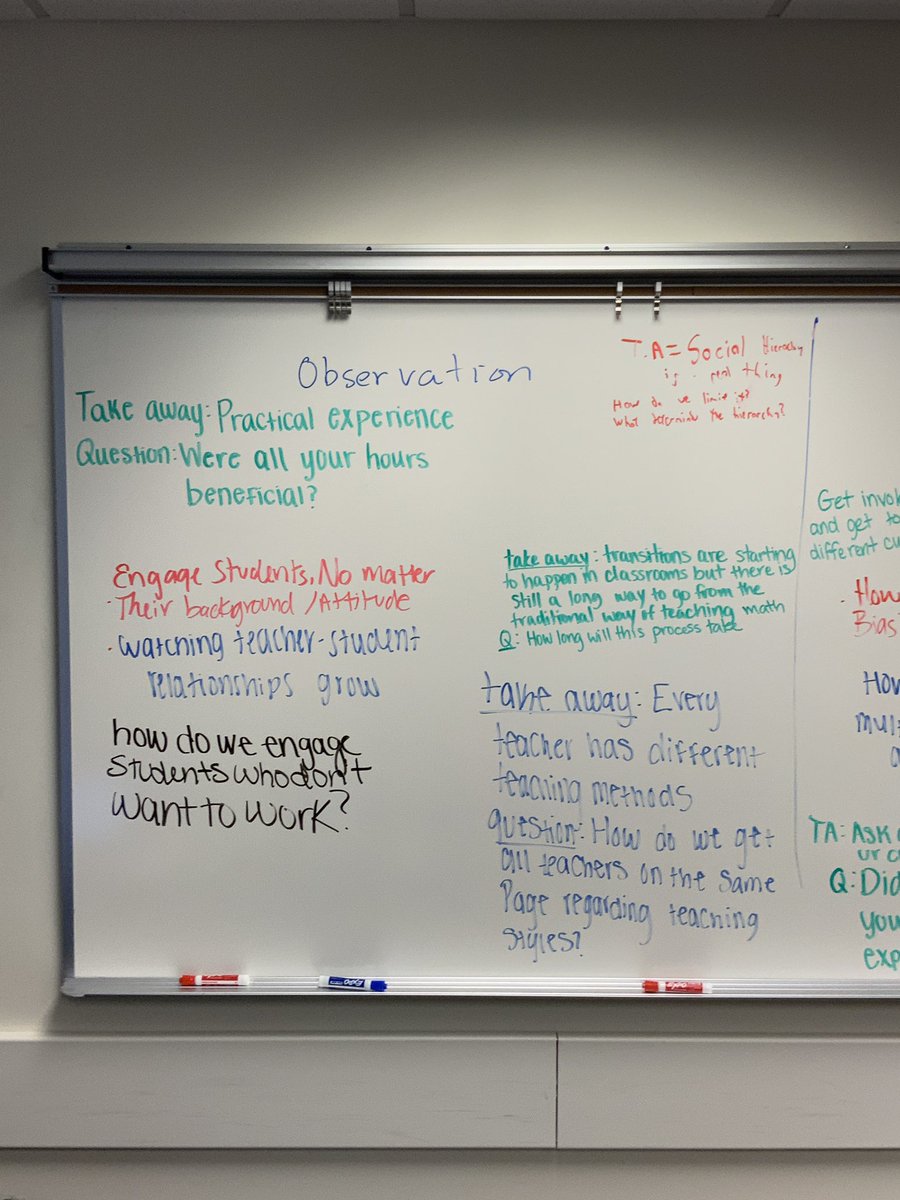 Observation
Take away: Practical experience
Question: Were all your hours
beneficial?
Engage Students, No matter
· Their background / Attitude
· watching teacher-student
relationships grow
how do we engage
students who don't
want to work?
T.A = Social Hierarchy
is real thing
How do we limit it?
What determine the hierarchy?
take away: transitions are starting
to happen in classrooms but there is
still a long way to go from the
traditional way of teaching math
Q: How long will this process take
take away: Every
teacher has different
teaching methods
question: How do we get
all teachers on the same
Page regarding teaching
styles?
Get
and get
different
· How
Bias
How
TA: Ask
ur
Q: Did
you